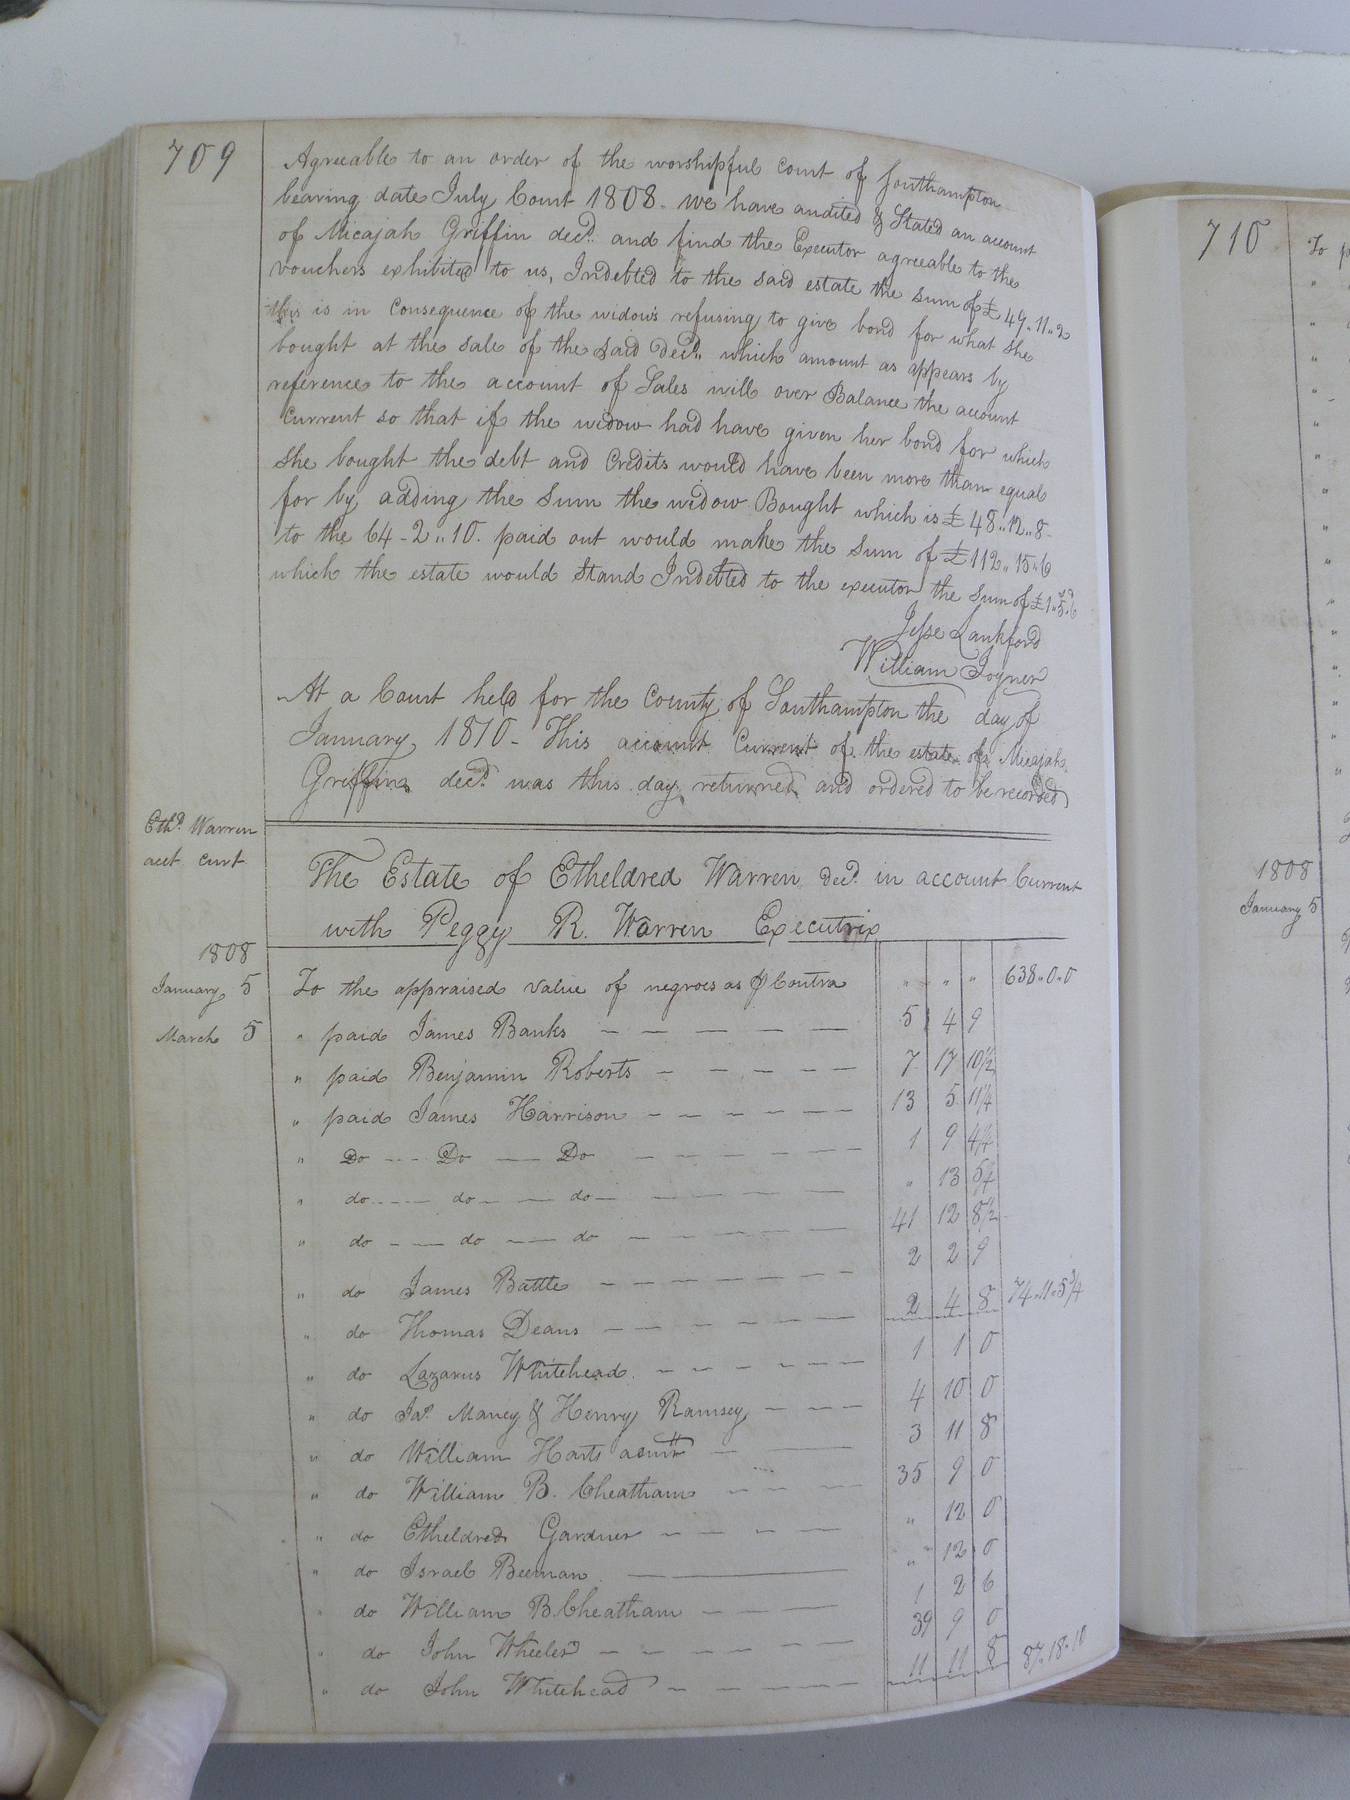 709
Agreeable to an order of the worshipful court of Southampton
bearing date July Court 1808. we have audited & Stated an account
of Micajah Griffin decd. and find the Executor agreeable to the
vouchers exhibited to us, Indebted to the said estate the sum of £49..11..2
this is in consequence of the widows refusing to give bond for what she
bought at the sale of the said Decd. which amount as appears by
reference to the account of Sales will over Balance the account
Current so that if the widow had have given her bond for which
she bought the debt and Credits would have been more than equal
for by adding the Sum the widow Bought which is £48..12..8
to the 64-2..10. paid out would make the Sum of £112..15..6
which the estate would Stand Indebted to the executor the Sum of £1..5..6
Jesse Lankford
William Joyner
At a Court held for the County of Southampton the day of
January 1810- This account Current of the estate of Micajah
Griffin decd. was this day returned and ordered to be recorded
Ethd. Warren
acct curt
The Estate of Etheldred Warren Decd. in account Current
with Peggy R. Warren Executrix
1808
January 5 To the appraised value of negroes as p Contra " " " 638..0..0
March 5 " paid James Banks 5 4 9
" paid Benjamin Roberts 7 17 10 1/2
" paid James Harrison 13 5 11 1/4
" Do Do Do 1 9 4 1/4
" do do do " 13 5 1/4
" do do do 41 12 8 1/2
" do James Battle 2 2 9
" do Thomas Deans 2 4 8 74..11..5 3/4
" do Lazarus Whitehead 1 1 0
" do Jas. Maney & Henry Ramsey 4 10 0
" do William Harts 3 11 8
" do William B. Cheatham 35 9 0
" do Etheldred Gardner " 12 0
" do Israel Beeman " 12 0
" do William B. Cheatham 1 2 6
" do John Wheeler 39 9 0
" do John Whitehead 11 11 8 87..18..10
710
To p
1808
January 5